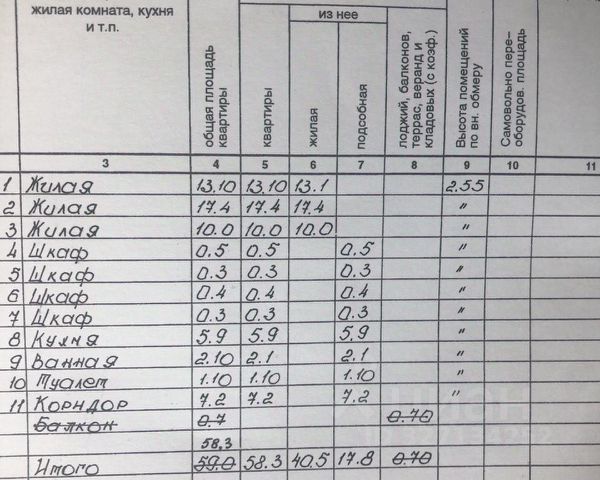 жилая комната, кухня
и т.п.
общая площадь квартиры
из нее
квартиры
жилая
подсобная
лоджий, балконов, террас, веранд и кладовых (с коэф.)
Высота помещений по вн. обмеру
Самовольно пере-оборудов. площадь
3 4 5 6 7 8 9 10 11
1 Жилая 13,10 13,10 13.1 2.55
2 Жилая 17.4 17.4 17.4 "
3 Жилая 10.0 10.0 10.0 "
4 Шкаф 0.5 0.5 0.5 "
5 Шкаф 0.3 0.3 0.3 "
6 Шкаф 0.4 0.4 0.4 "
7 Шкаф 0.3 0.3 0.3 "
8 Кухня 5.9 5.9 5.9 "
9 Ванная 2.10 2.1 2.1 "
10 Туалет 1.10 1.10 1.10 "
11 Коридор 7.2 7.2 7.2 "
Балкон 0.7 0.70
58,3
Итого 59.0 58.3 40.5 17.8 0.70